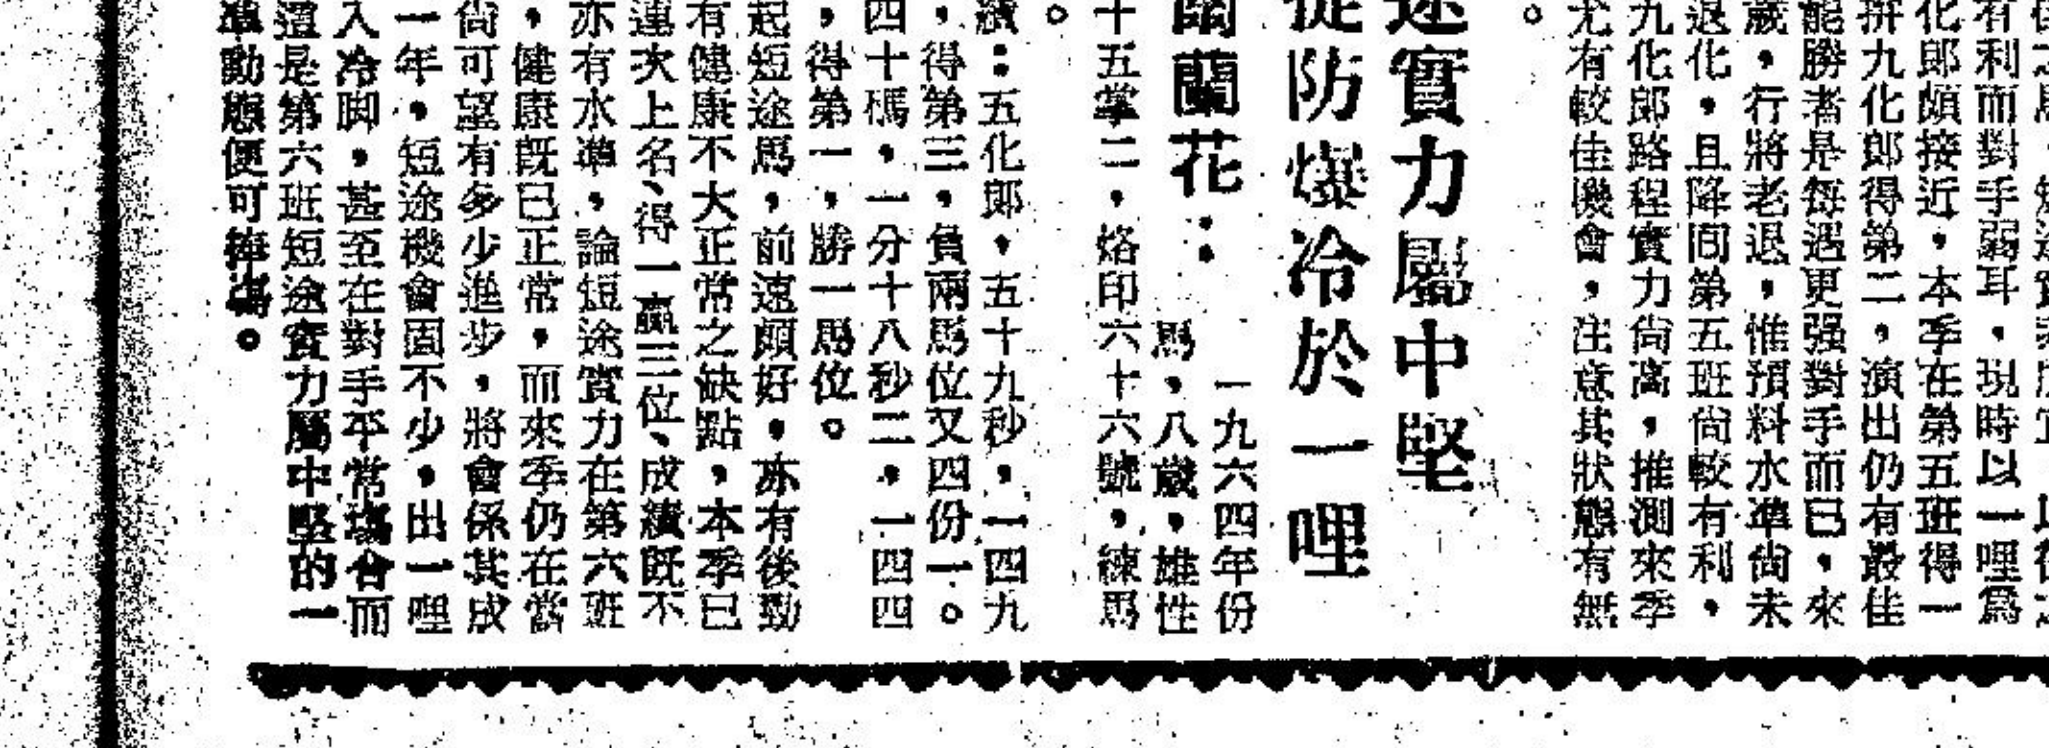 有利而對手弱耳，現時以一哩爲
化郎頗接近，本季在第五班得一
拼九化郎得第二，演出仍有最佳
能勝者是每遇更强對手而已，來
歲，行將老退，惟預料水準尙未
退化，且降囘第五班尙較有利，
九化郎路程實力尙高，推測來季
尤有較佳機會，注意其狀態有無
。
途實力屬中堅
從防爆冷於一哩
蘭花：
一九六四年份
馬，八歲，雄性
十五掌二，烙印六十六號，練馬
。
績：五化郎，五十九秒，一四九
，得第三，負兩馬位又四份一。
四十碼，一分十八秒二，一四四
，得第一，勝一馬位。
起短途馬，前速頗好，亦有後勁
有健康不大正常之缺點，本季已
連次上名、得一贏三位、成績既不
亦有水準，論短途實力在第六班
，健康既已正常，而來季仍在當
尙可望有多少進步，將會係其成
一年，短途機會固不少，出一哩
入冷脚，甚至在對手平常場合而
還是第六班短途實力屬中堅的一
準動態便可捧場。